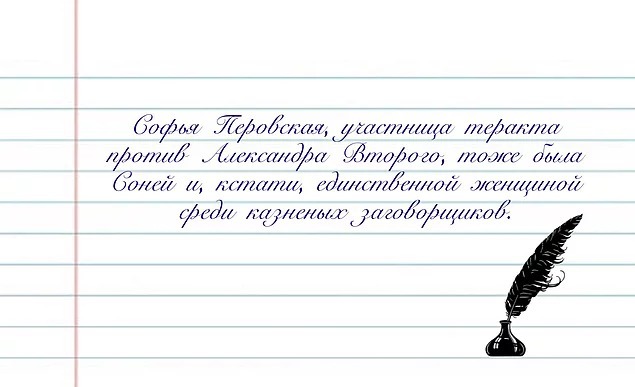 Софья Перовская, участница теракта
против Александра Второго, тоже была
Соней и, кстати, единственной женщиной
среди казненых заговорщиков.